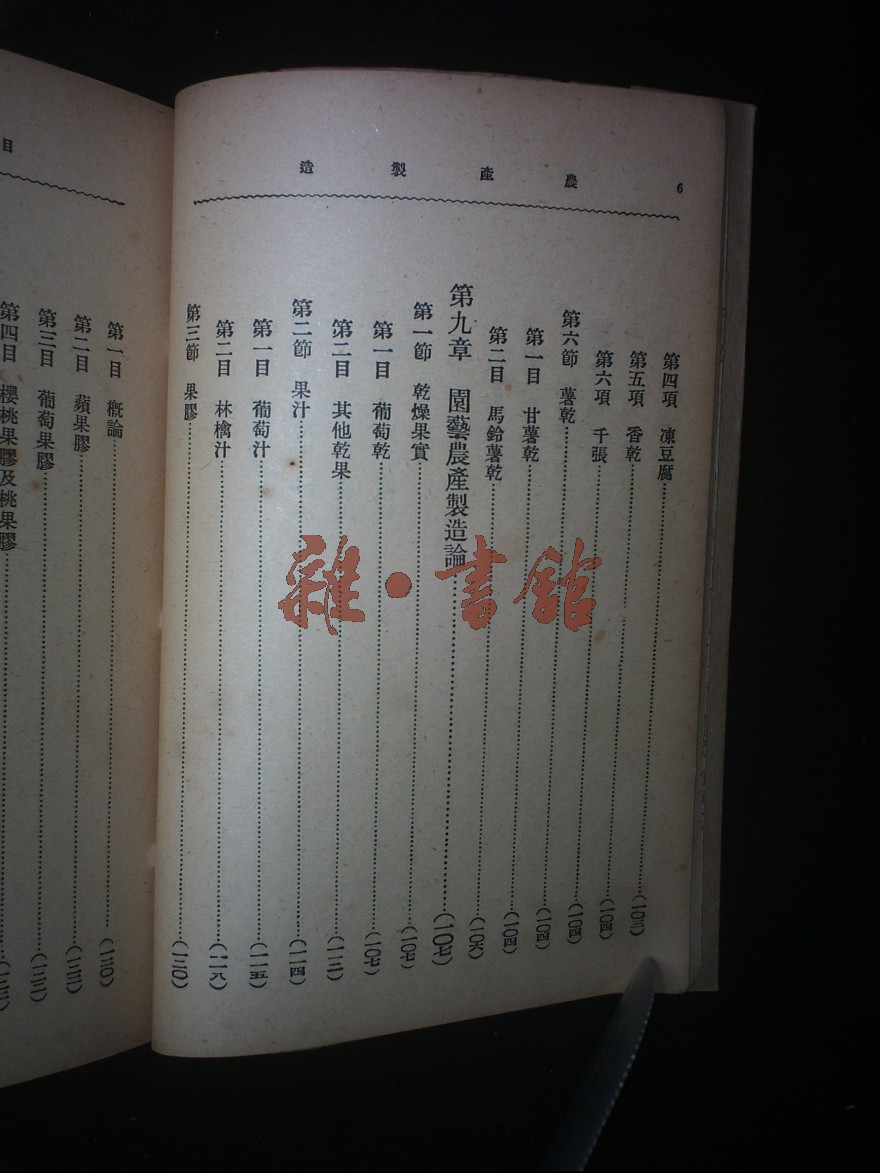 農產製造 6
第四項 凍豆腐……(一〇三)
第五項 香乾……(一〇四)
第六項 千張……(一〇四)
第六節 薯乾……(一〇四)
第一目 甘薯乾……(一〇四)
第二目 馬鈴薯乾……(一〇六)
第九章 園藝農產製造論……(一〇七)
第一節 乾燥果實……(一〇七)
第一目 葡萄乾……(一〇七)
第二目 其他乾果……(一一二)
第二節 果汁……(一一四)
第一目 葡萄汁……(一一五)
第二目 林檎汁……(一一八)
第三節 果膠……(一二〇)
目
第一目 概論……(一二〇)
第二目 蘋果膠……
第三目 葡萄果膠……
第四目 櫻桃果膠及桃果膠……
雜·書館